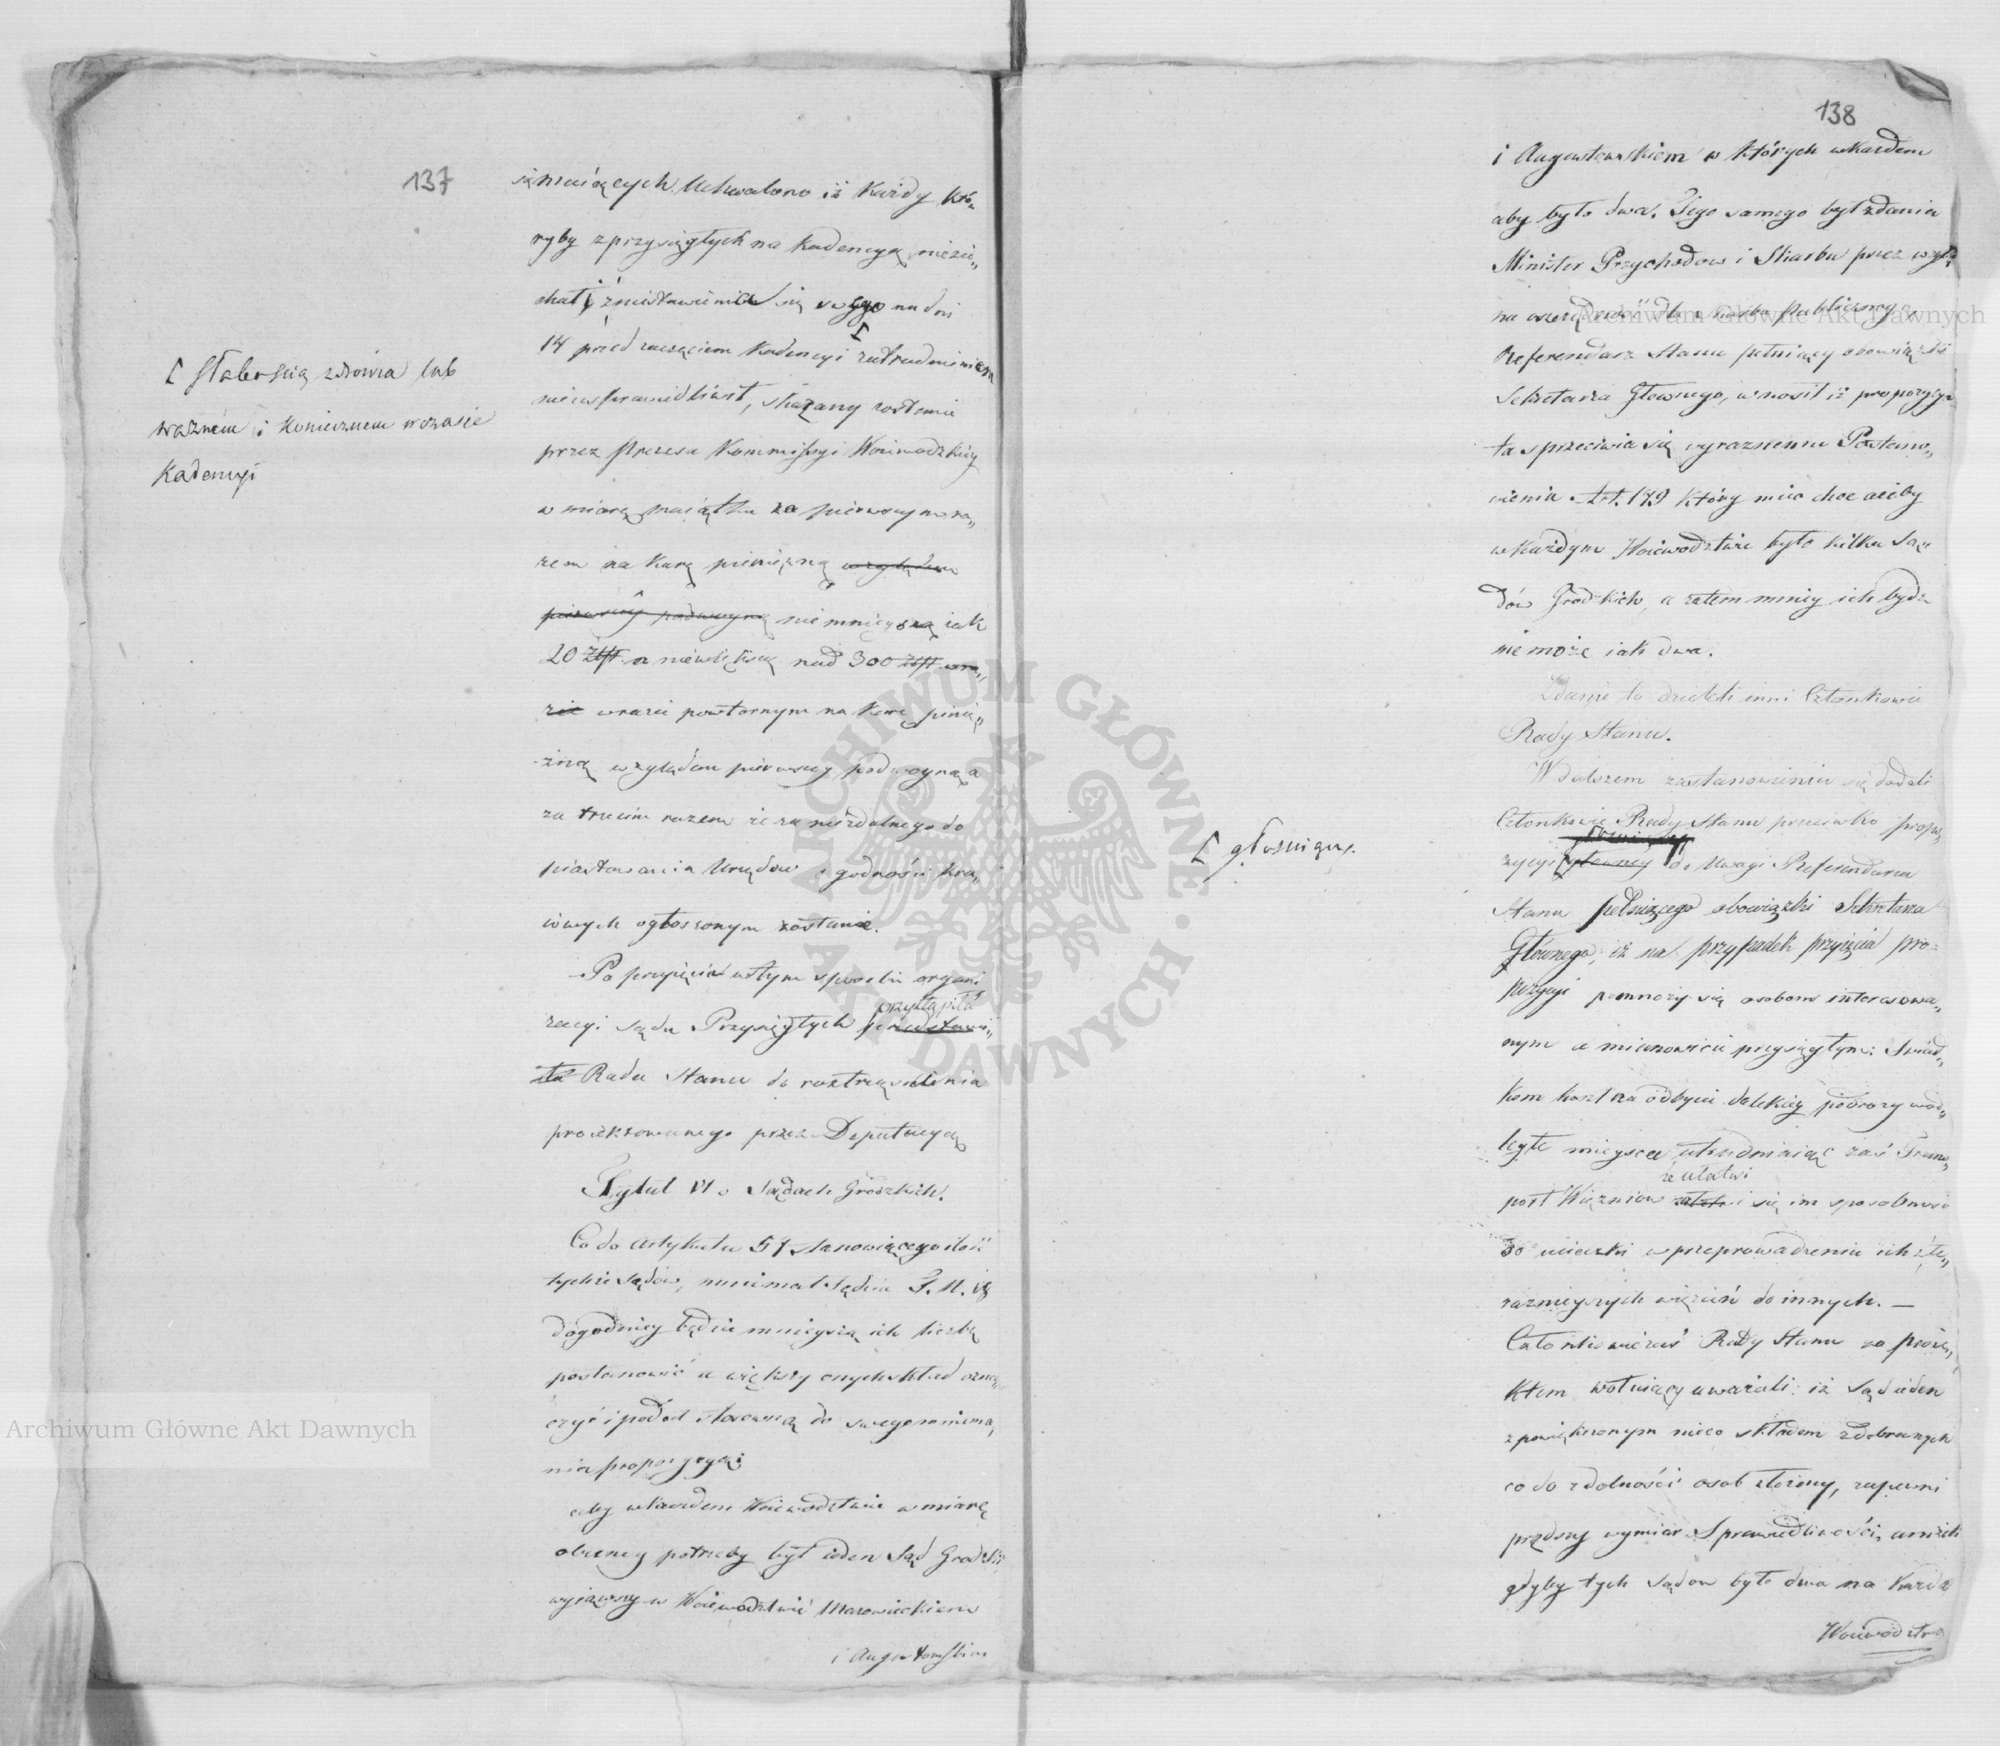 137
siąmaiących. Uchwalono iż każdy któ„
ryby z przysięgłych na kadencyą niezie„
chał i z niestawienia się swego na dni
14 przed zaczęciem kadencyi zatrudnieniem
nieusprawiedliwił, skazany zostanie
przez Prezesa Kommissyi Woiewodzkiey
w miarę maiątku za pierwszym ra„
zem na karę pieniężną względem
pierwszey podwoyną niemnieyszą iak
20 Złł. a niewiększą nad 300 złł. wra„
zie w razie powtornym na karę pienię„
żną względem pierwszey podwoyną a
za trzecim razem że za niezdolnego do
piastowania Urzędow i godności kra„
iowych ogłoszonym zostanie.
Po przyięciu w tym sposobie organi
przystąpiła
zacyi Sądu Przysięgłych przedstawi„
ła Rada Stanu do roztrząśnienia
proiektowanego przez Deputacyą
Tytuł VI o Sądach Grodzkich.
Co do Artykułu 57 stanowiącego ilość
tychże Sądów, mniemał Sędzia T. N. iż
dogodniey będzie mnieyszą ich liczbę
postanowić a większy onych skład ozna„
czyć i podał stosowną do swego mniema„
nia propozycyą;
aby w każdem Woiewodztwie w miarę
obecney potrzeby był ieden Sąd Grodzki
wyiąwszy w Woiewodztwie Mazowieckiem
i Augustowskiem
[ słabością zdrowia lub
ważnem i koniecznem w czasie
Kadencyi
138
i Augustowskiem w których w każdem
aby było dwa. Tego samego był zdania
Minister Przychodow i Skarbu przez wzglą
na oszczędność dla skarbu publicznego,
Referendarz Stanu pełniący obowiązki
Sekretarza Głownego, wnosił iż propozycya
ta sprzeciwia się wyraznemu Postano„
wieniu Art. 149 który mieć chce ażeby
w każdym Woiewodztwie było kilka Są„
dów Grodzkich, a zatem mniey ich bydź
nie może iak dwa.
Zdanie to dzielili inni Członkowie
Rady Stanu.
W dalszem zastanowieniu się dodali
Członkowie Rady Stanu przeciwko propo„
zycyi głowney do Uwagi Referendarza
Stanu pełniącego obowiązki Sekretarza
Głównego, iż na przypadek przyięcia pro-
pozycyi pomnoży się osobom interesowa„
nym a mianowicie przysięgłym i Świad„
kom koszt na odbycie dalekiey podroży w od„
ległe mieysca utrudniaiąc zaś Trans„
że ułatwi
port Więzniow się im sposobność
do ucieczki w przeprowadzeniu ich z te„
raznieyszych więzień do innych. —
Członkowie zaś Rady Stanu za proie„
ktem wotuiący uważali: iż Sąd ieden
z powiększonym nieco składem z dobranych
co do zdolności osob złożony, zapewni
prędszy wymiar Sprawiedliwości, aniżeli
gdyby tych Sądow było dwa na każde
Woiewodztwo
Archiwum Główne Akt Dawnych
Archiwum Główne Akt Dawnych
ARCHIWUM GŁÓWNE · AKT DAWNYCH ·